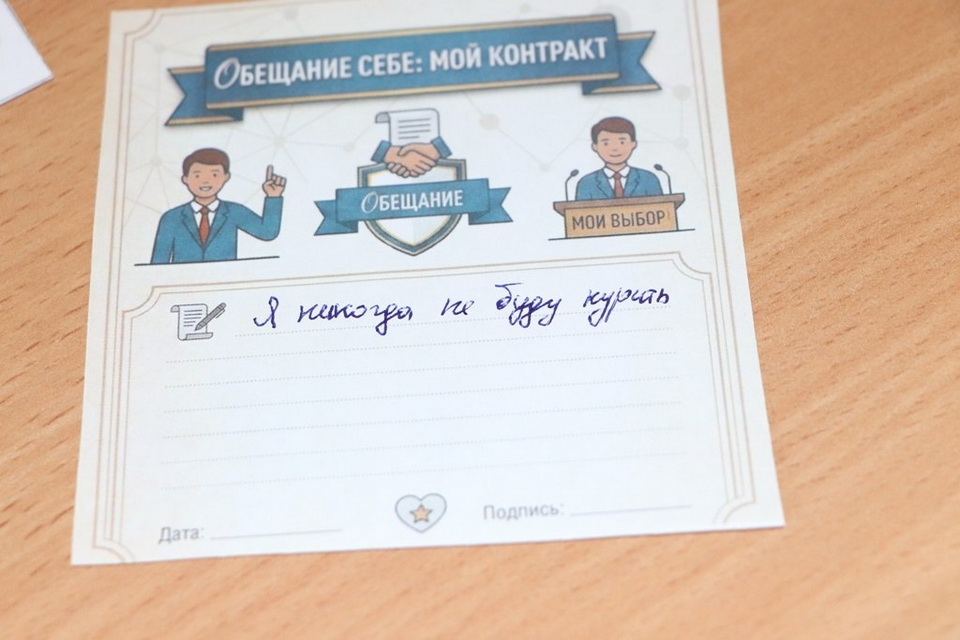 ОБЕЩАНИЕ СЕБЕ: МОЙ КОНТРАКТ
ОБЕЩАНИЕ
МОЙ ВЫБОР
Я никогда не буду курить
Дата:
Подпись: